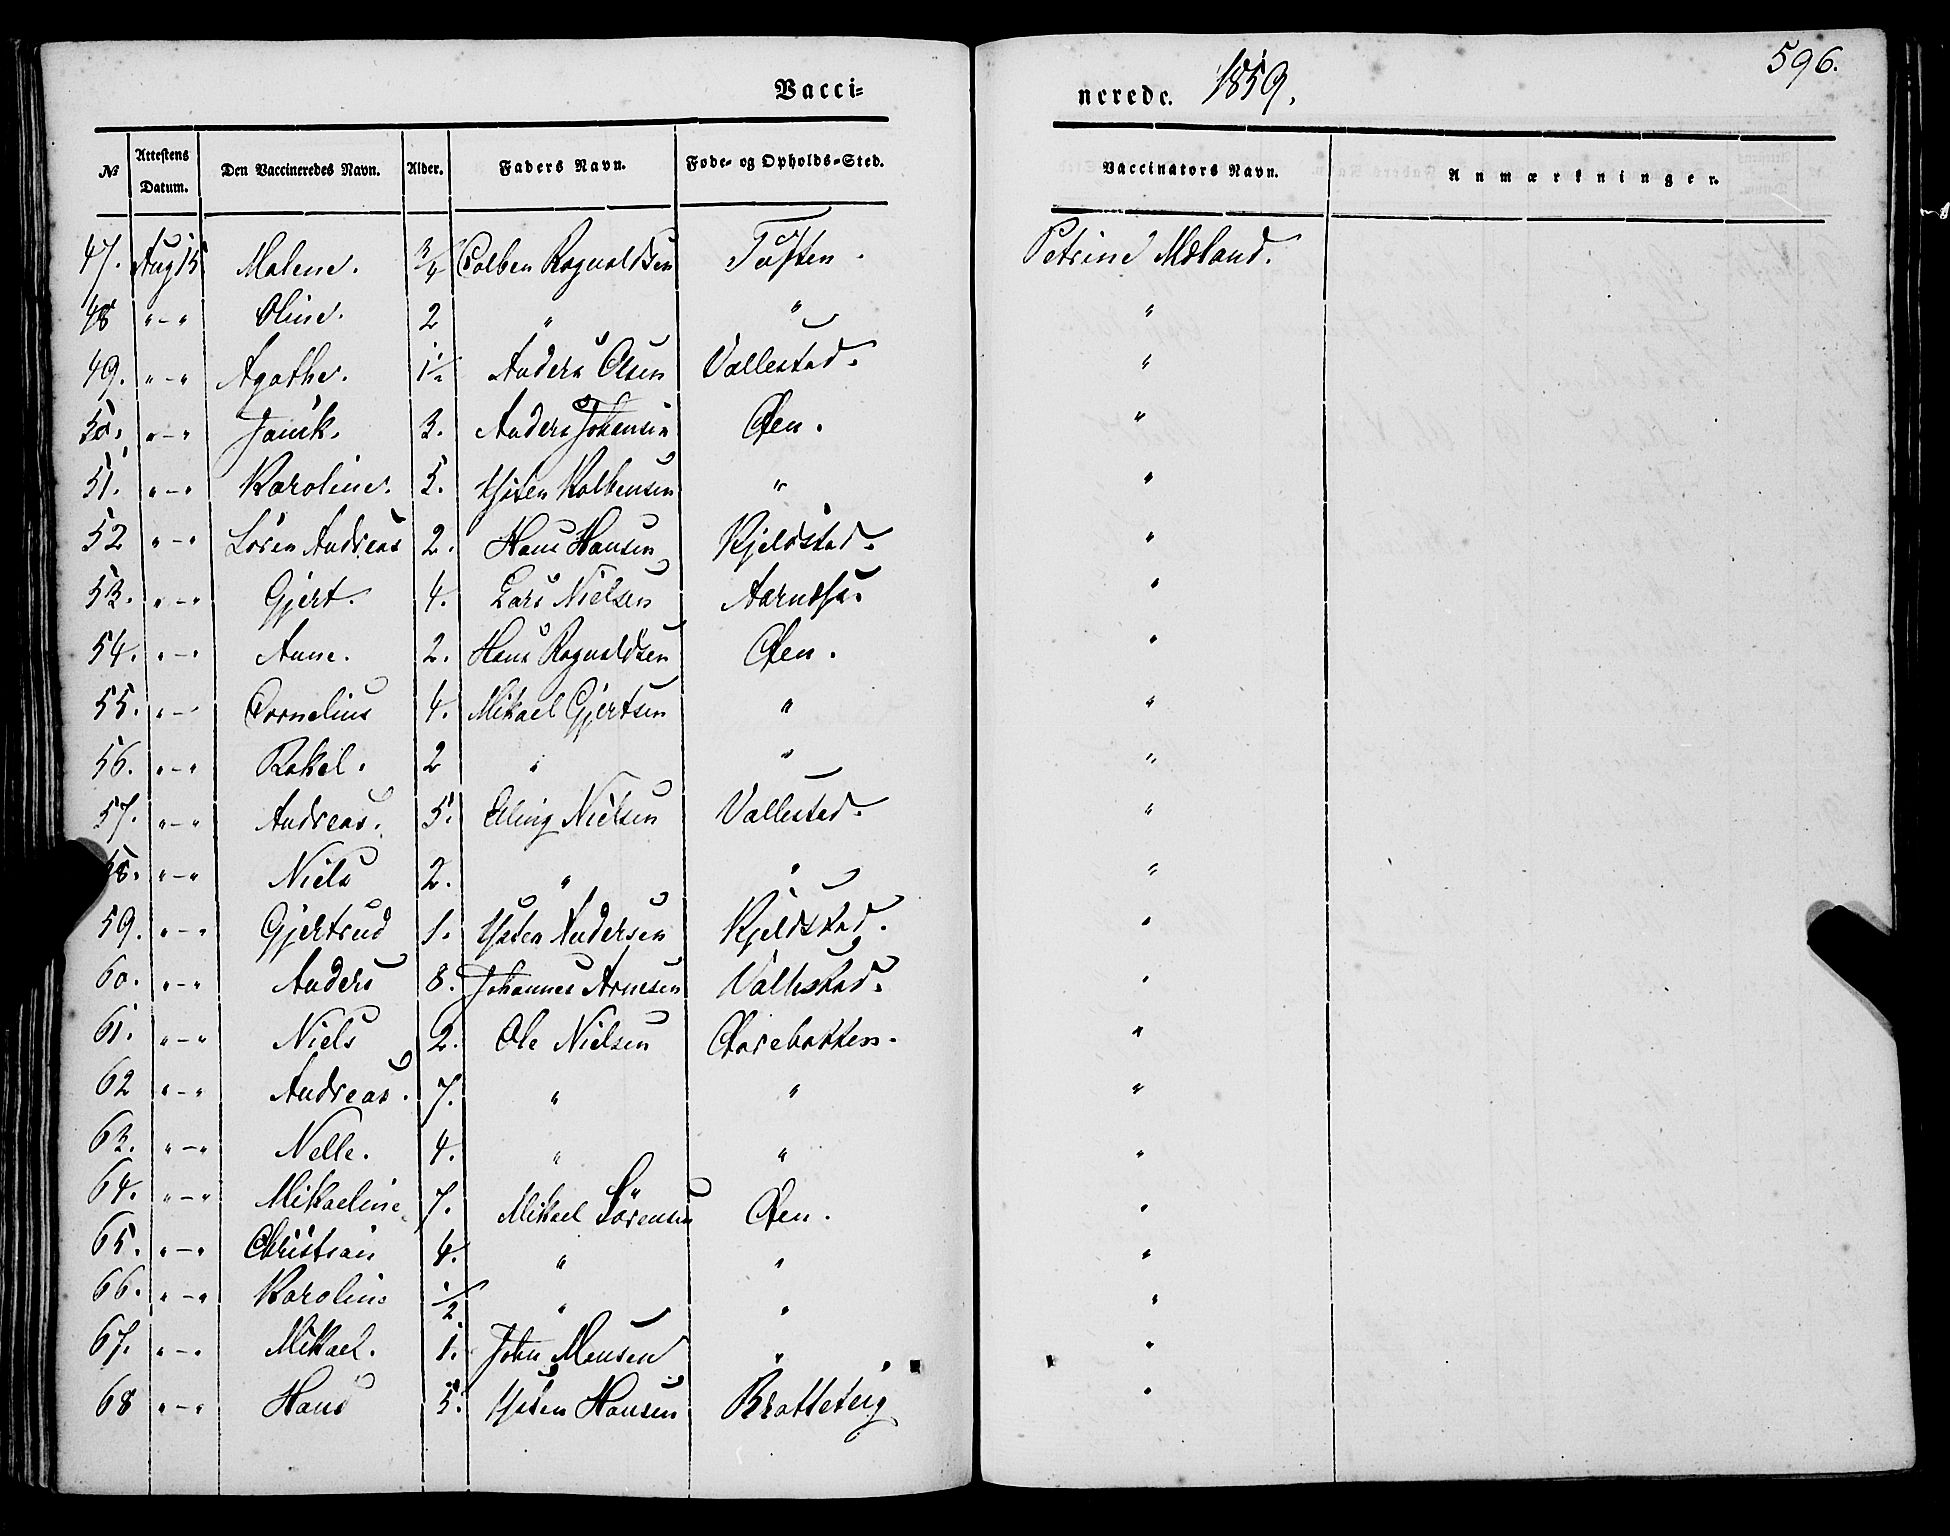 Vacci-
nerede. 1859.
596.
№ Attestens Datum. Den Vaccineredes Navn. Alder. Faders Navn. Føde- og Opholds-Sted. Vaccinators Navn. Anmærkninger.
47. Aug 15 Malene. 3/4 Colben Ragnvaldsen Tuften. Petrine Mæland.
48 " - " Oline. 2 " " "
49. " - " Agathe. 1½ Anders Olsen Vallestad. "
50. " - " Janik. 3. Anders Johansen Øen. "
51. " - " Karoline. 5. Kolbensen " "
52 " - " Søren Andreas 2. Hans Hansen Kjeldstad. "
53. " - " Gjert. 4. Lars Nielsen "
54. " - " Anne. 2. Hans Ragnvaldsen Øen. "
55. " - " Cornelius 4. Mikael Gjertsen " "
56. " - " Rakel. 2 " " "
57. " - " Andreas. 5. Elling Nielsen Vallestad. "
58. " - " Niels 2. " " "
59. " - " Gjertrud 1. Andersen Kjeldstad. "
60. " - " Anders 8. Johannes Arnesen Vallestad. "
61. " - " Niels 2. Ole Nielsen "
62 " - " Andreas. 7. " " "
63. " - " Nelle. 4. " " "
64. " - " Mikaeline 7. Mikael Sörensen Øen. "
65. " - " Christian 4. " " "
66. " - " Karoline 1/2 " " "
67. " - " Mikael. 1. John Monsen " "
68 " - " Hans 5. Hansen Bratteteig "